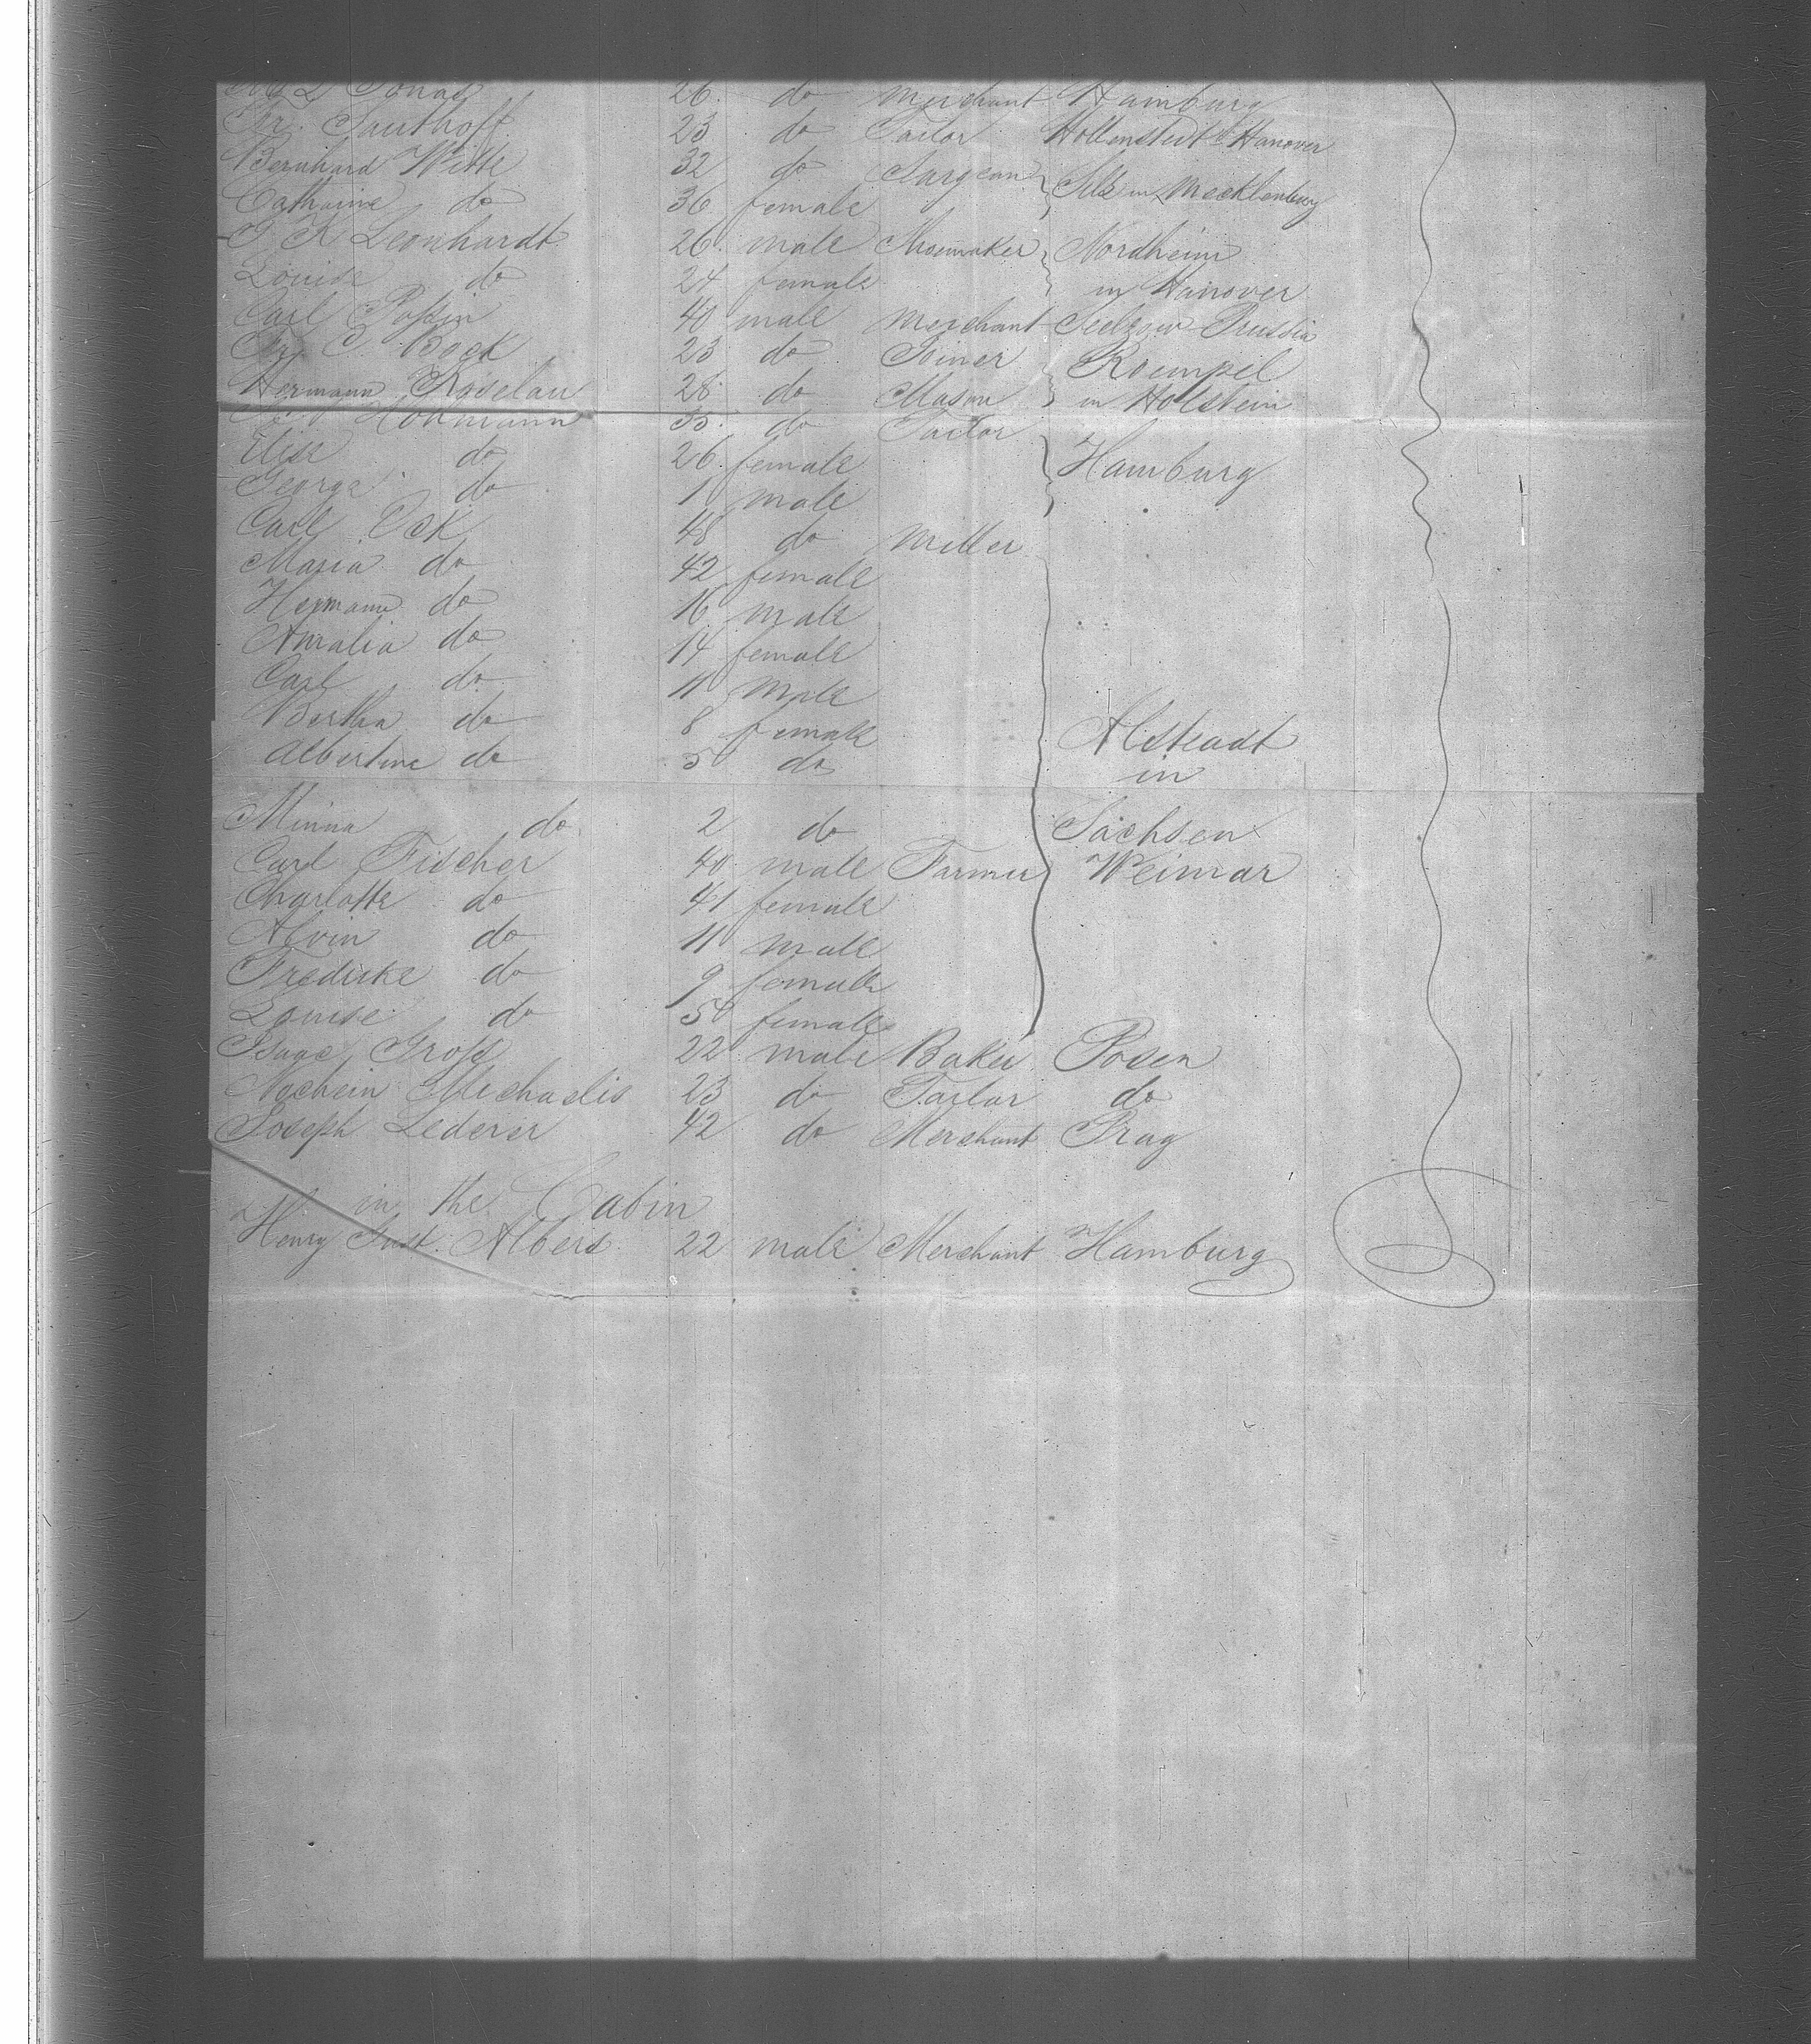 Jonas 26 do Merchant Hamburg
Fr. Sauthoff 23 do Tailor Hollenstedt Hanover
Bernhard Witte 32 do Surgeon
Catharine do 36 female in Mecklenburg
Leonhardt 26 male Shoemaker Nordheim
Louise do 24 female in Hanover
Carl 40 male merchant Seelzow Prussia
Fr. C. Bock 23 do Joiner
Hermann Roselau 28 do Mason in Holstein
Hohmann do Tailor
Elise do 26 female Hamburg
George do 1 male
Carl Ock 48 do Miller
Maria do 42 female
Hermann do 16 male
Amalia do 14 female
Carl do 11 male
Bertha do 8 female Alsteadt
Albertine do 5 do in
Minna do 2 do Sachsen
Carl Fischer 40 male Farmer Weimar
Charlotte do 41 female
Alvin do 11 male
Fredirke do 9 female
Louise do 5 female
Isaac Gross 22 male Baker Posen
Nochein Michaelis 23 do Tailor do
Joseph Lederer 42 do Merchant Prag
in the Cabin
Henry Just. Albers 22 male Merchant Hamburg